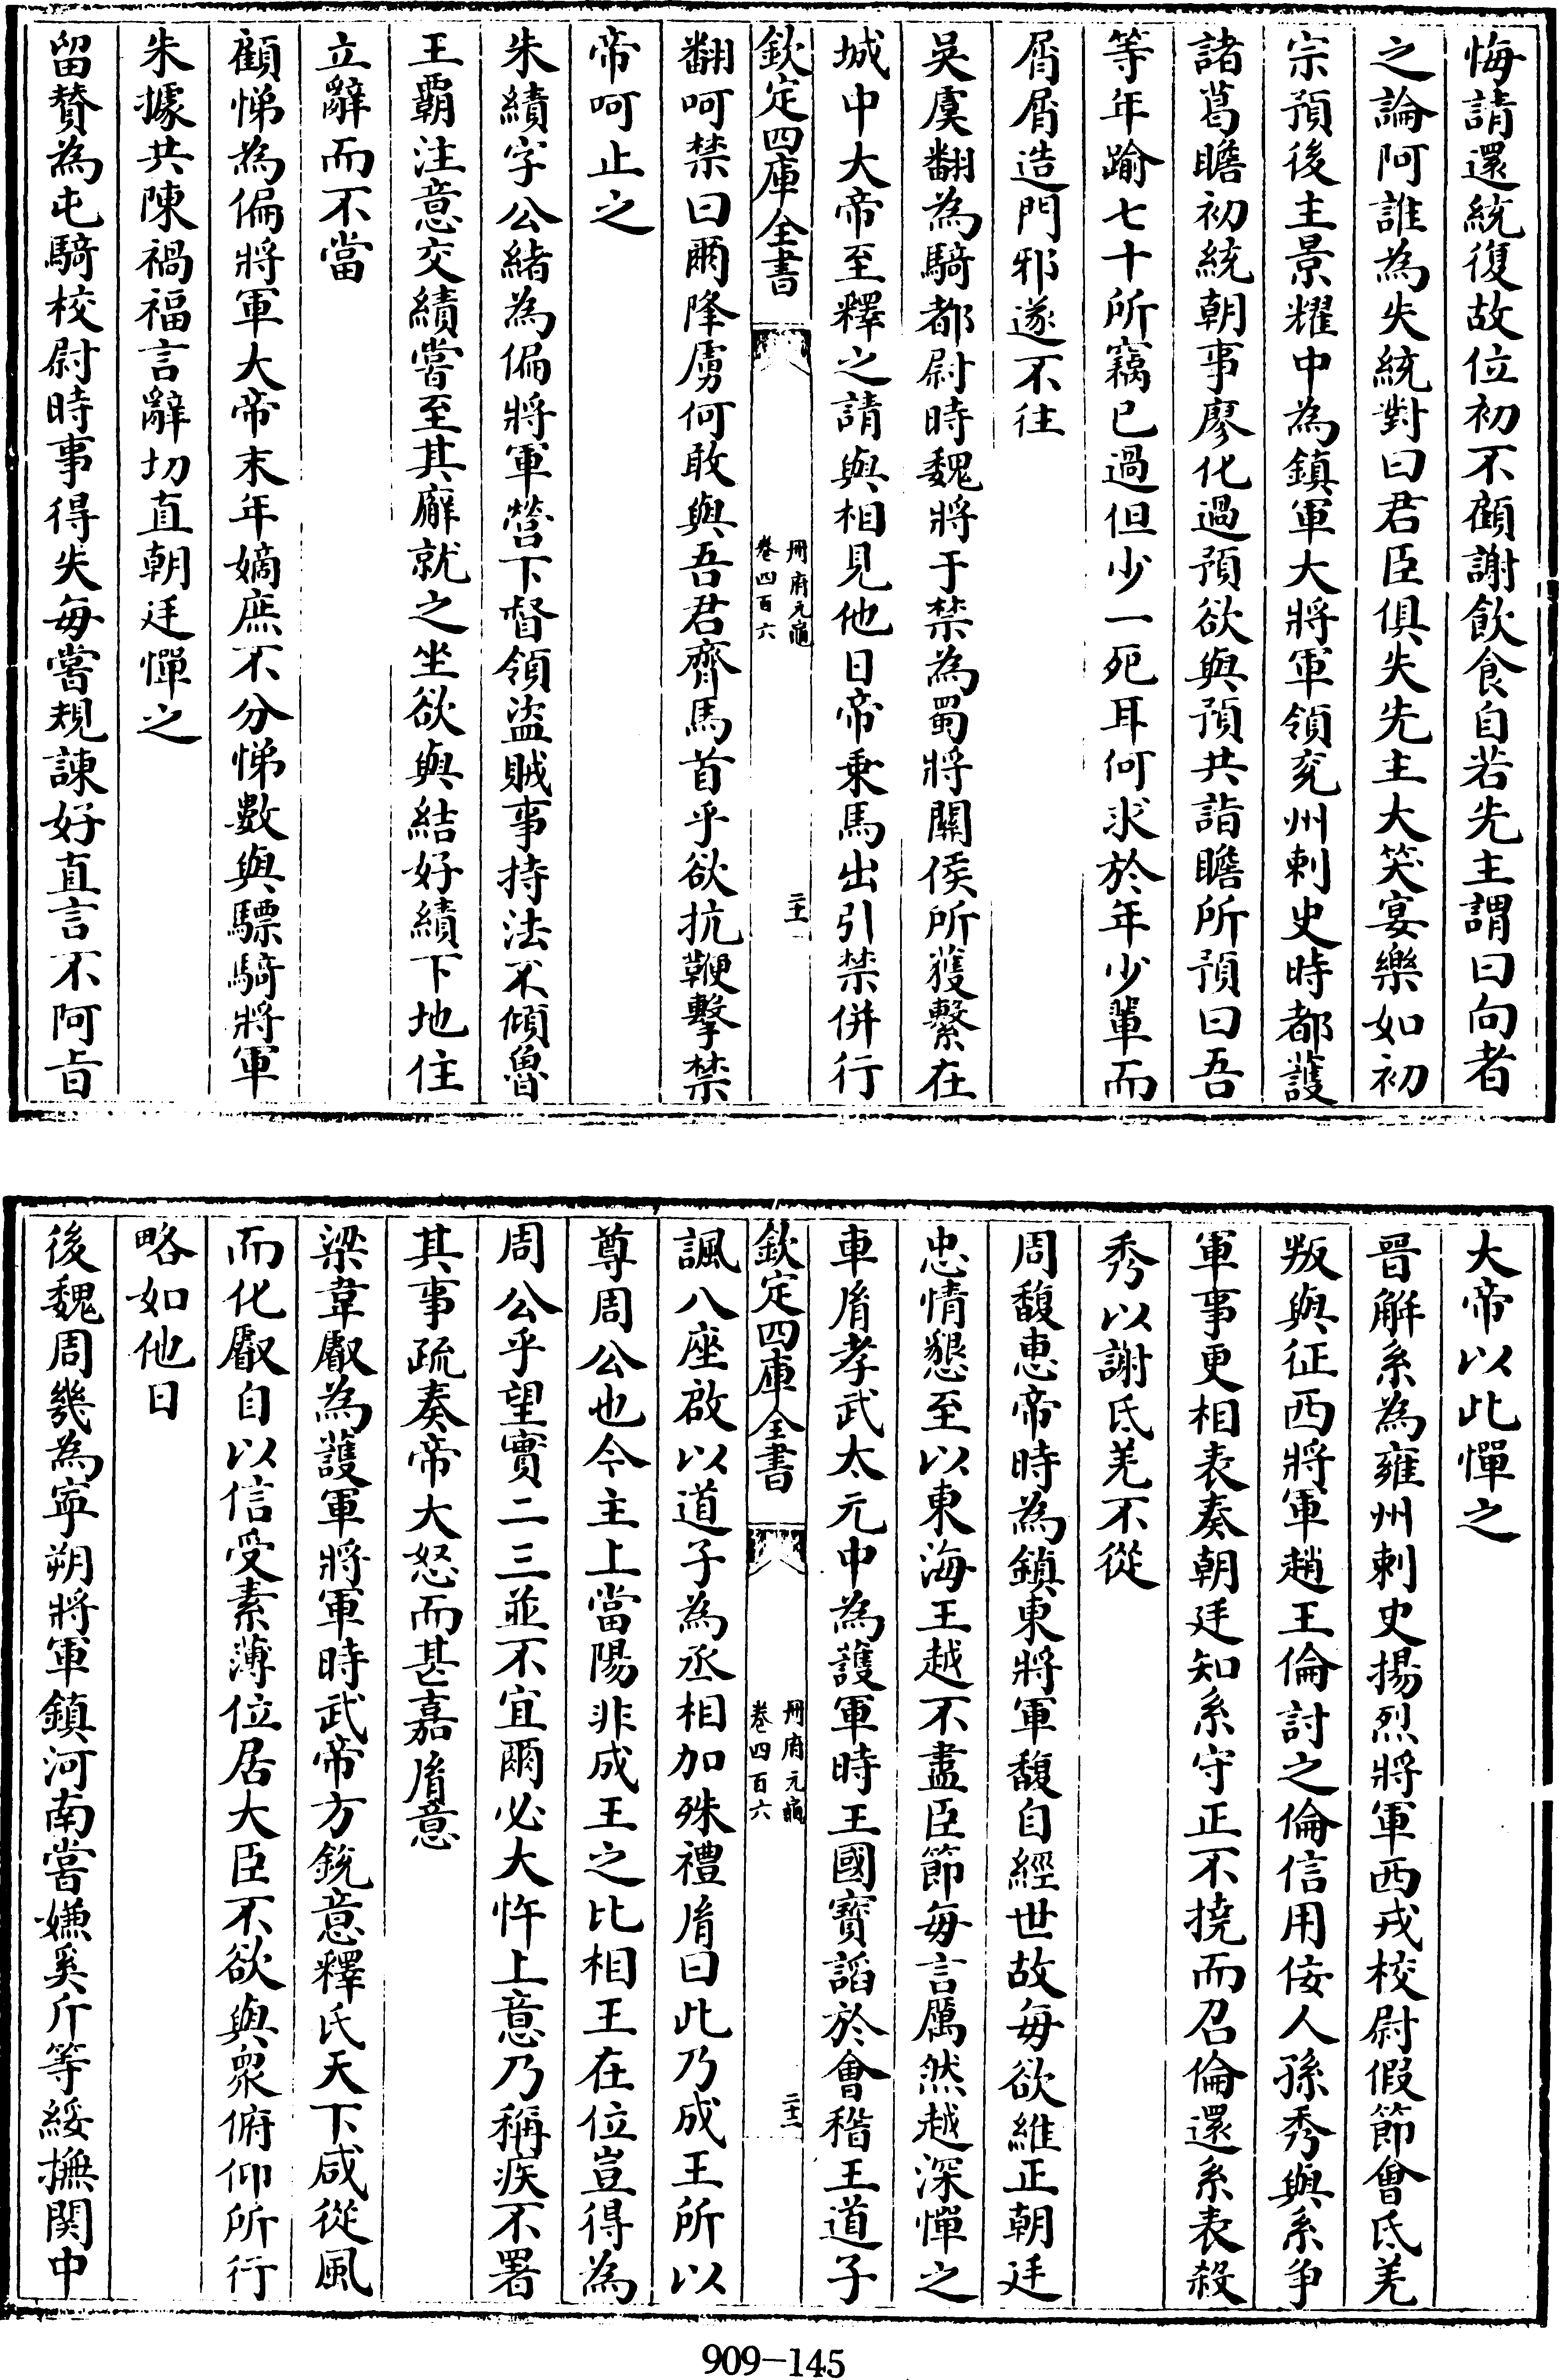 悔請還統復故位初不顧謝飲食自若先主謂曰向者
之論阿誰為失統對曰君臣俱失先主大笑宴樂如初
宗預後主景耀中為鎮軍大將軍領兖州刺史時都護
諸葛瞻初統朝事廖化過預欲與預共詣瞻所預曰吾
等年踰七十所竊已過但少一死耳何求於年少輩而
屑屑造門邪遂不往
吳虞翻為騎都尉時魏將于禁為蜀將關侯所獲繫在
城中大帝至釋之請與相見他日帝乗馬出引禁併行
欽定四庫全書
冊府元龜
卷四百六
二十一
翻呵禁曰爾降虜何敢與吾君齊馬首乎欲抗鞭擊禁
帝呵止之
朱績字公緒為偏將軍營下督領盜賊事持法不傾魯
王霸注意交績嘗至其廨就之坐欲與結好績下地住
立辭而不當
顧悌為偏將軍大帝末年嫡庶不分悌數與驃騎將軍
朱據共陳禍福言辭切直朝廷憚之
留贊為屯騎校尉時事得失每嘗規諫好直言不阿㫖
大帝以此憚之
晉解系為雍州刺史揚烈將軍西戎校尉假節會氐羌
叛與征西將軍趙王倫討之倫信用佞人孫秀與系爭
軍事更相表奏朝廷知系守正不撓而召倫還系表殺
秀以謝氐羌不從
周馥惠帝時為鎮東將軍馥自經世故每欲維正朝廷
忠情懇至以東海王越不盡臣節每言厲然越深憚之
車胤孝武太元中為護軍時王國寶諂於會稽王道子
欽定四庫全書
冊府元龜
卷四百六
二十二
諷八座啟以道子為丞相加殊禮胤曰此乃成王所以
尊周公也今主上當陽非成王之比相王在位豈得為
周公乎望實二三並不宜爾必大忤上意乃稱疾不署
其事疏奏帝大怒而甚嘉胤意
梁韋叡為護軍將軍時武帝方銳意釋氏天下咸從風
而化叡自以信受素薄位居大臣不欲與衆俯仰所行
略如他日
後魏周幾為寧朔將軍鎮河南嘗嫌奚斤等綏撫関中
909-145